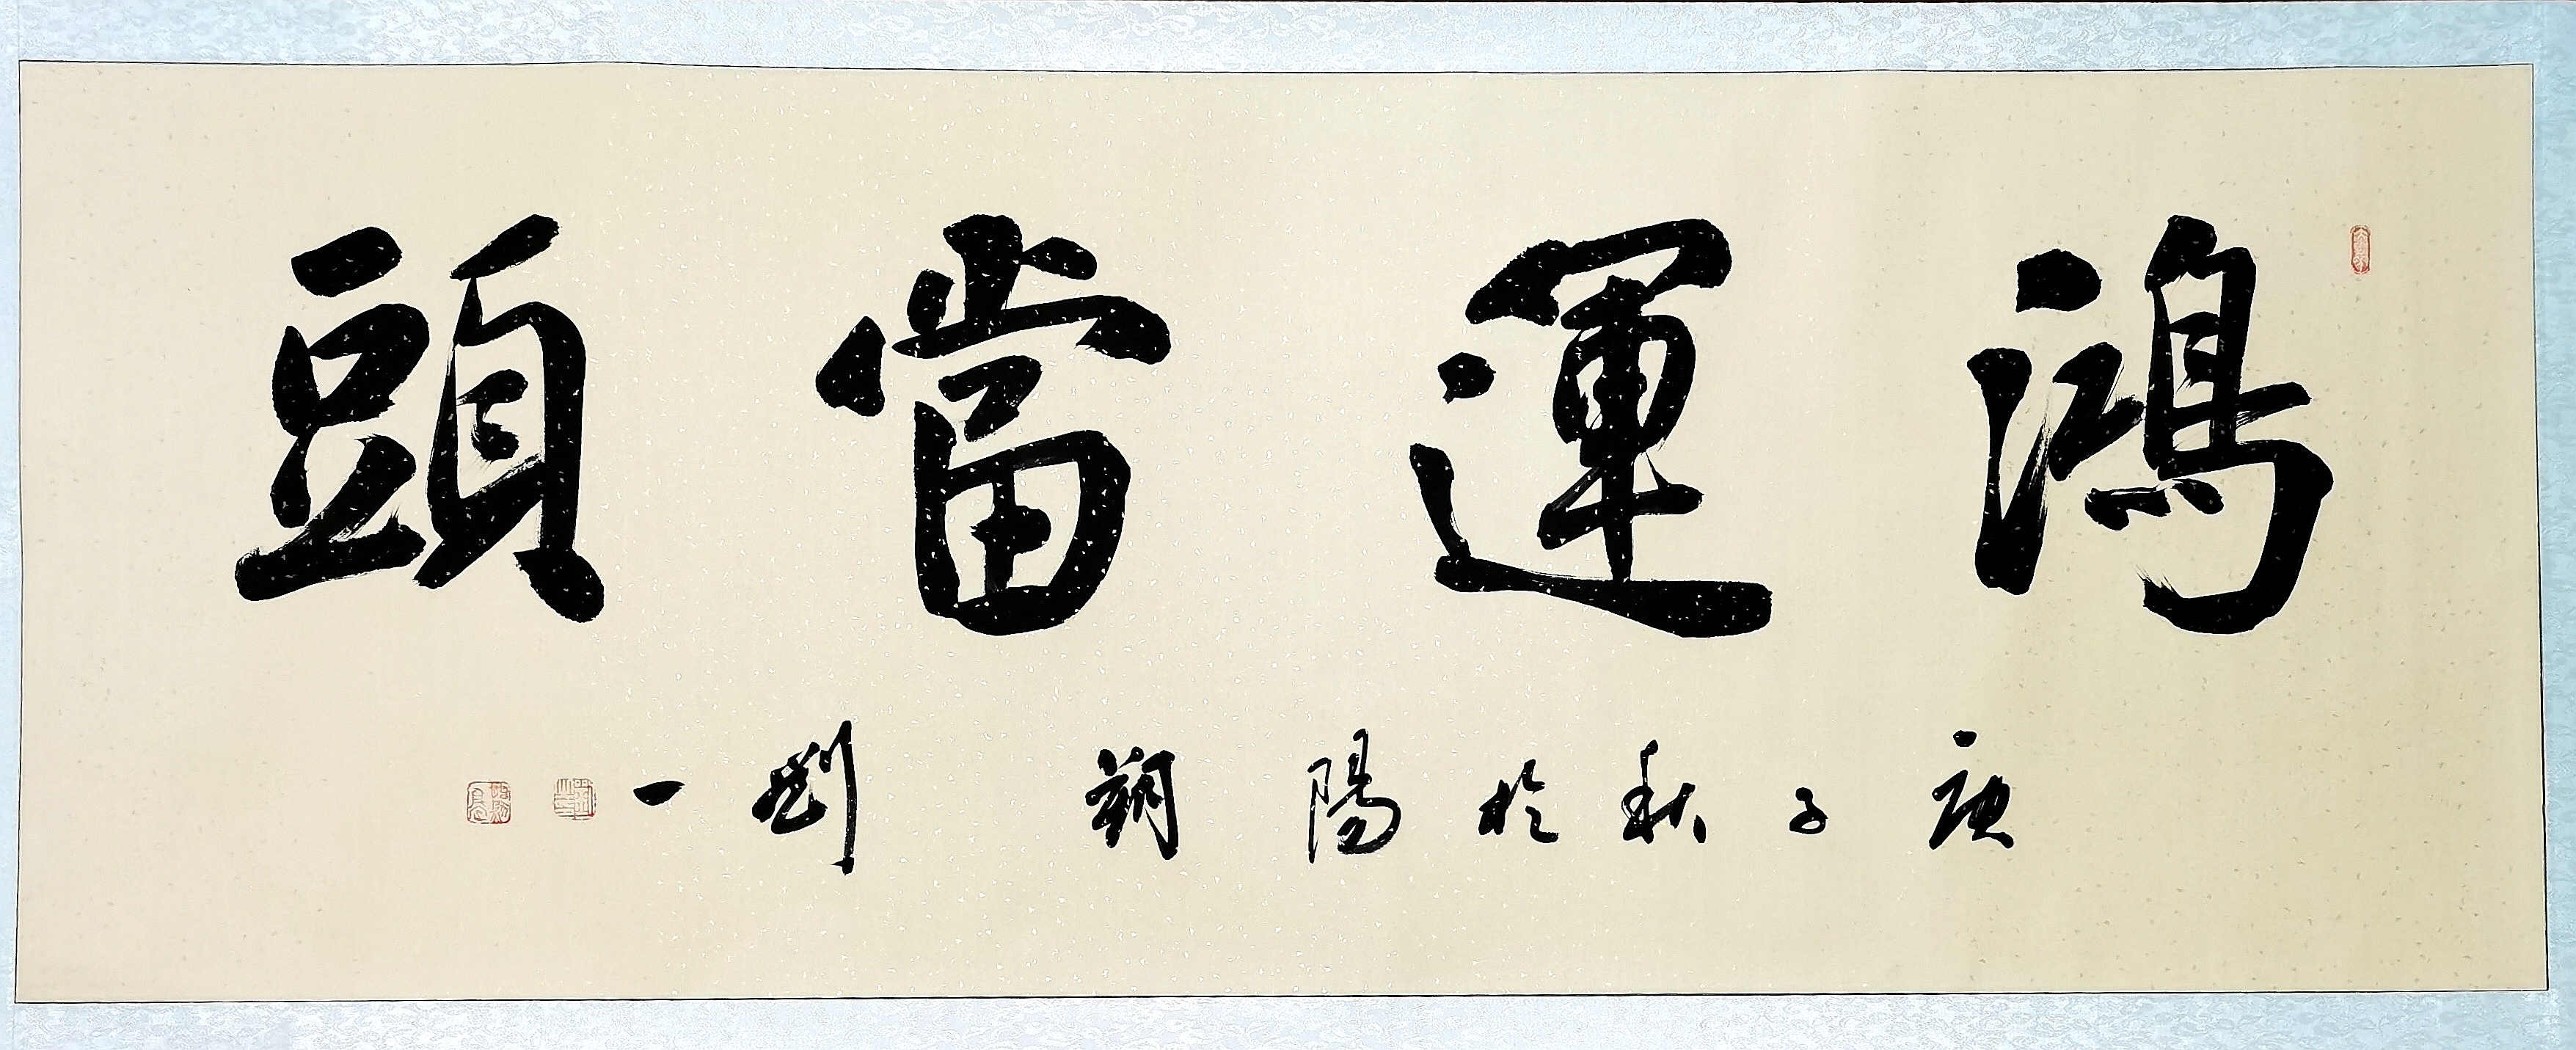 鴻運當頭
庚子秋於陽朔劉一